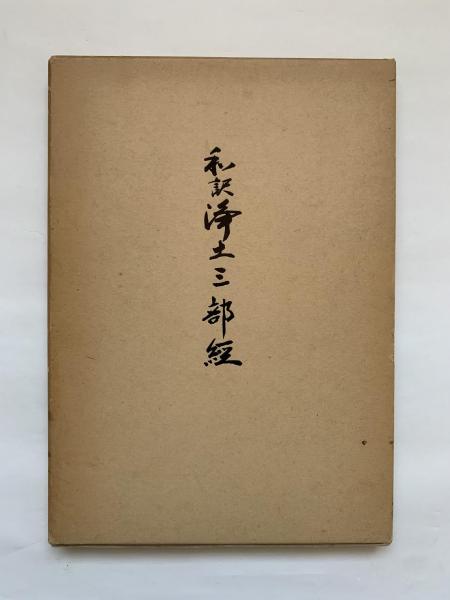 和訳浄土三部経